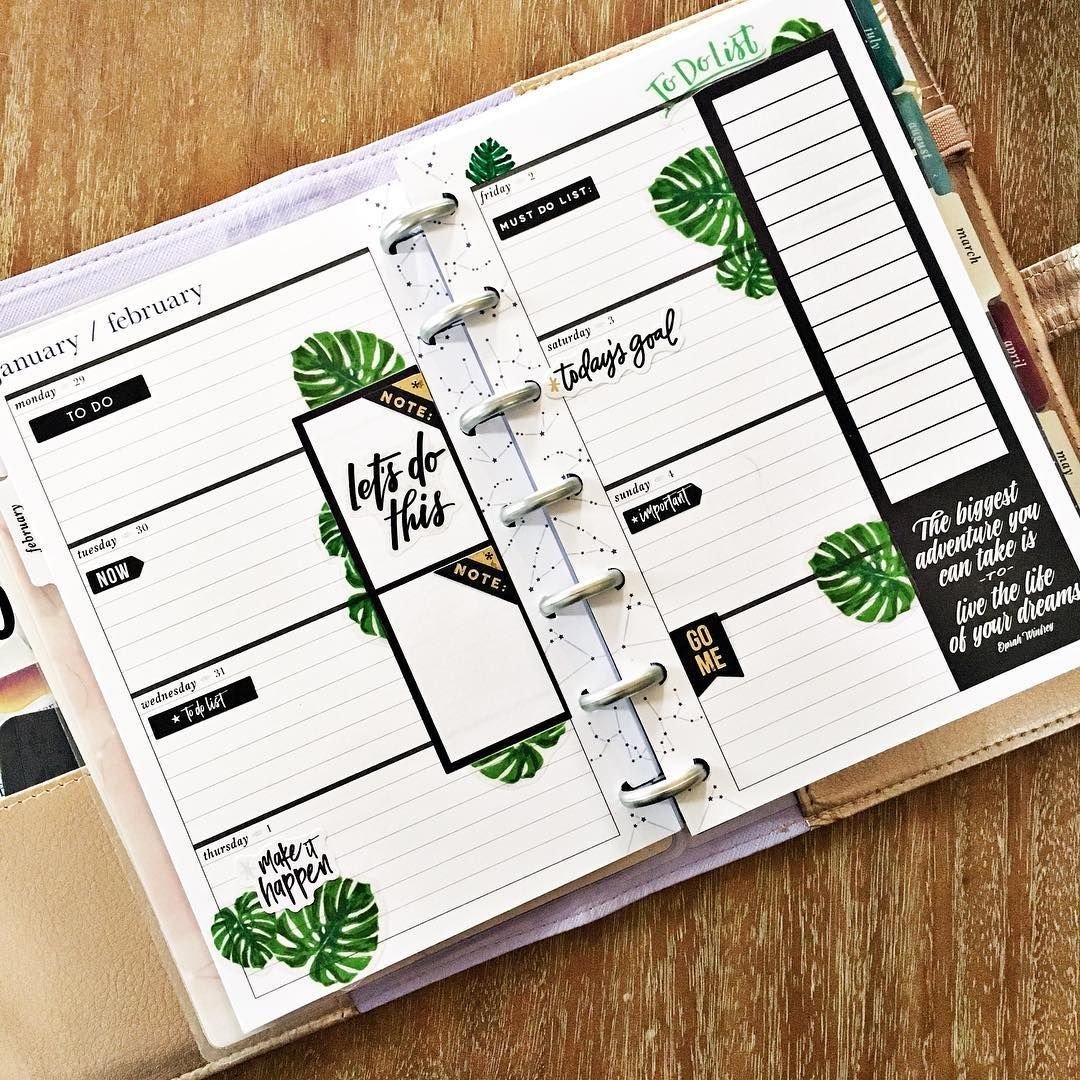 january / february
monday 29
TO DO
NOTE:
Let's do
this
tuesday 30
NOW
NOTE:
wednesday 31
To do list
thursday 1
make it
happen
february
To Do List
friday 2
MUST DO LIST:
saturday 3
*today's goal
sunday 4
important
GO
ME
The biggest
adventure you
can take is
-TO-
live the life
of your dreams
Oprah Winfrey
july
august
march
april
may